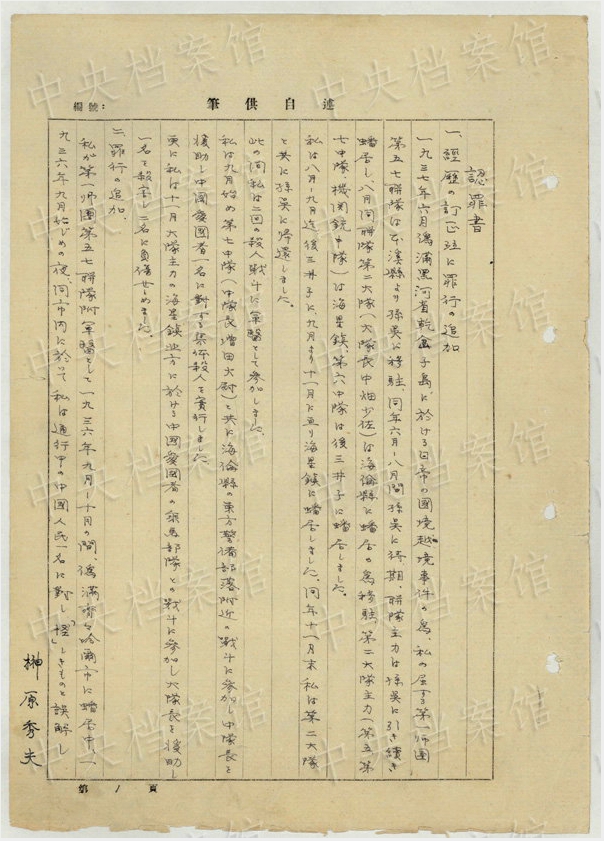 編號:
述自供筆
認罪書
一、經歷の訂正並に罪行の追加
一九三七年六月偽満黒河省乾岔子島に於ける日帝の國境越境事件の為、私の屬する第一師團
第五七聯隊は本溪縣より孫吳に移駐、同年六月－八月間孫吳に待期、聯隊主力は孫吳に引き続き
蟠居し、八月同聯隊第二大隊(大隊長中畑少佐)は海倫縣に蟠居の為移駐、第二大隊主力(第五、第
七中隊、機関銃中隊)は海星鎮、第六中隊は後三井子に蟠居しました。
私は八月－九月迄後三井子に、九月より十一月に亘り海星鎮に蟠居しました、同年十一月末私は第二大隊
と共に孫吳に帰還しました。
此の间私は二回の殺人戦斗に軍醫として参加しました、
私は九月始め第七中隊(中隊長増田大尉)と共に海倫縣の東方警備部落附近の戦斗に参加し中隊長を
援助し中國愛國者一名に對する集体殺人を実行しました
更に私は十一月大隊主力の海星鎮北方に於ける中國愛國者の騎馬部隊との戦斗に参加し大隊長を援助し
一名を殺害し二名に負傷せしめました。
二、罪行の追加、
私が第一師團第五七聯隊附軍醫として一九三六年九月－十月の間、偽満齊々哈爾市に蟠居中、一
九三六年九月始じめの夜、同市内に於いて私は通行中の中國人民一名に對し「怪」しきものと誤解し
榊原秀夫
第1頁
中央档案馆
中央档案馆
中央档案馆
中央档案馆
中央档案馆
中央档案馆
中央档案馆
中央档案馆